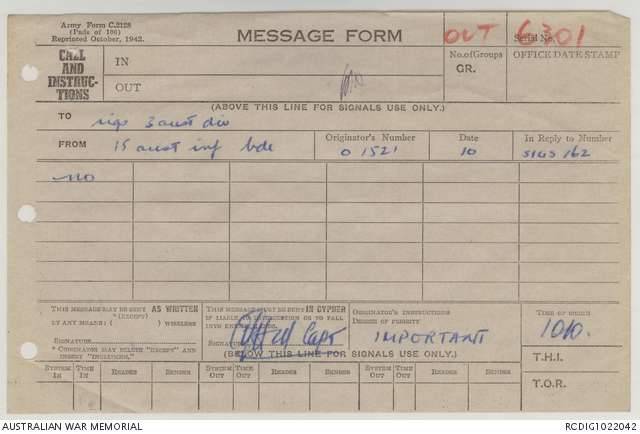 Army Form C.2128
(Pads of 100)
Reprinted October, 1942.
MESSAGE FORM
OUT 6301
Serial No.
CALL AND INSTRUCTIONS
IN
OUT
No. of Groups
GR.
OFFICE DATE STAMP
(ABOVE THIS LINE FOR SIGNALS USE ONLY.)
TO sigs 3 aust div
FROM 15 aust inf bde
Originator's Number
O 1521
Date
10
In Reply to Number
SIGS 162
no
THIS MESSAGE MAY BE SENT AS WRITTEN
*(EXCEPT)
BY ANY MEANS ( ) WIRELESS
SIGNATURE
* ORIGINATOR MAY DELETE "EXCEPT" AND
INSERT "INCLUDING."
THIS MESSAGE MUST BE SENT IN CYPHER
IF LIABLE TO INTERCEPTION OR TO FALL
INTO ENEMY HANDS.
SIGNATURE
Capt
ORIGINATOR'S INSTRUCTIONS
DEGREE OF PRIORITY
IMPORTANT
TIME OF ORIGIN
1010.
T.H.I.
T.O.R.
(BELOW THIS LINE FOR SIGNALS USE ONLY.)
SYSTEM IN TIME IN READER SENDER SYSTEM OUT TIME OUT READER SENDER SYSTEM OUT TIME OUT READER SENDER
AUSTRALIAN WAR MEMORIAL
RCDIG1022042